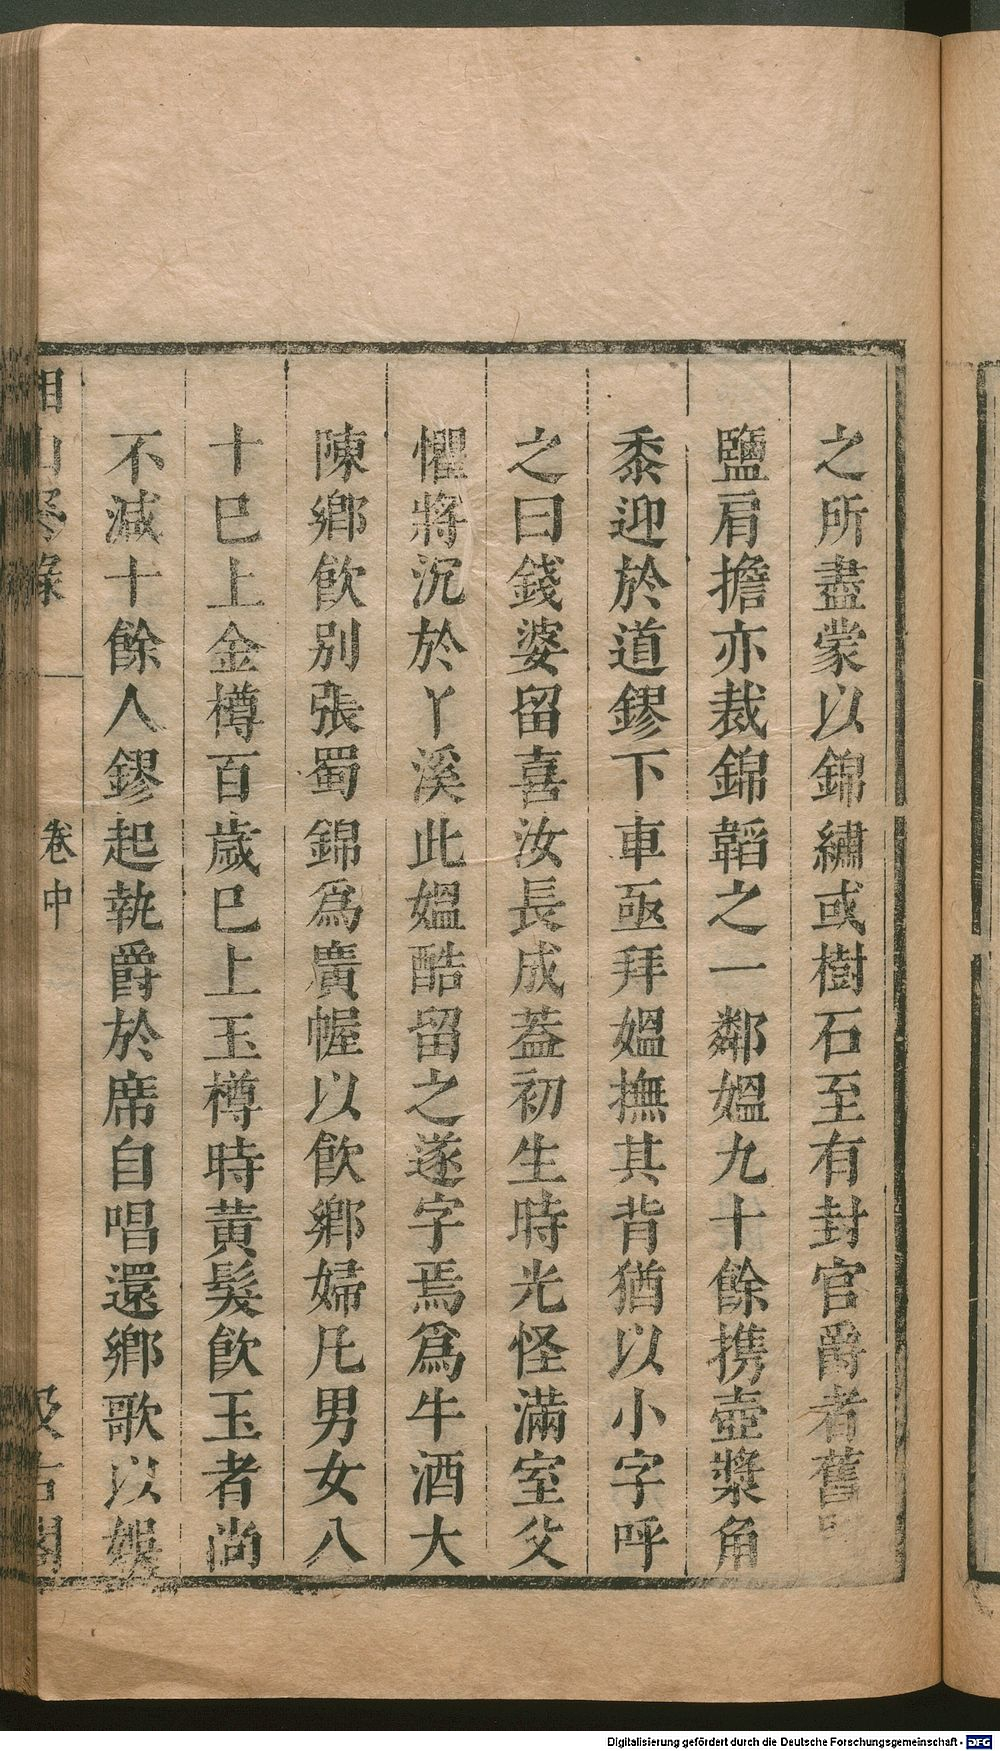 之所盡蒙以錦繡或樹石至有封官爵者舊
鹽肩擔亦裁錦韜之一鄰媼九十餘携壺漿角
黍迎於道鏐下車亟拜媼撫其背猶以小字呼
之曰錢婆留喜汝長成蓋初生時光怪滿室父
懼將沉於丫溪此媼酷留之遂字焉爲牛酒大
陳鄉飲别張蜀錦爲廣幄以飲鄉婦凡男女八
十巳上金樽百歲巳上玉樽時黄髮飲玉者尚
不減十餘人鏐起執爵於席自唱還鄉歌以娛
相山野錄 卷中 汲古閣
Digitalisierung gefördert durch die Deutsche Forschungsgemeinschaft - DFG